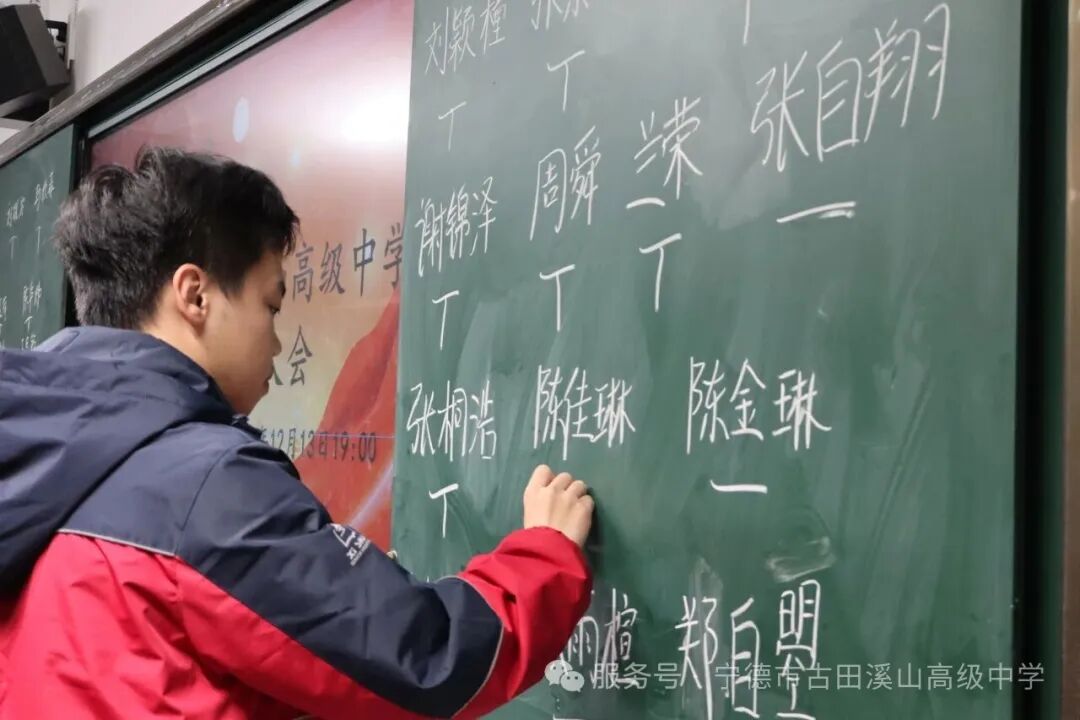 刘颖橦
张自翔
谢锦泽 周舜 兰荣
张桐浩 陈佳琳 陈金琳
雨楦 郑自盟
高级中学
会
12月13日19:00
服务号 宁德市古田溪山高级中学